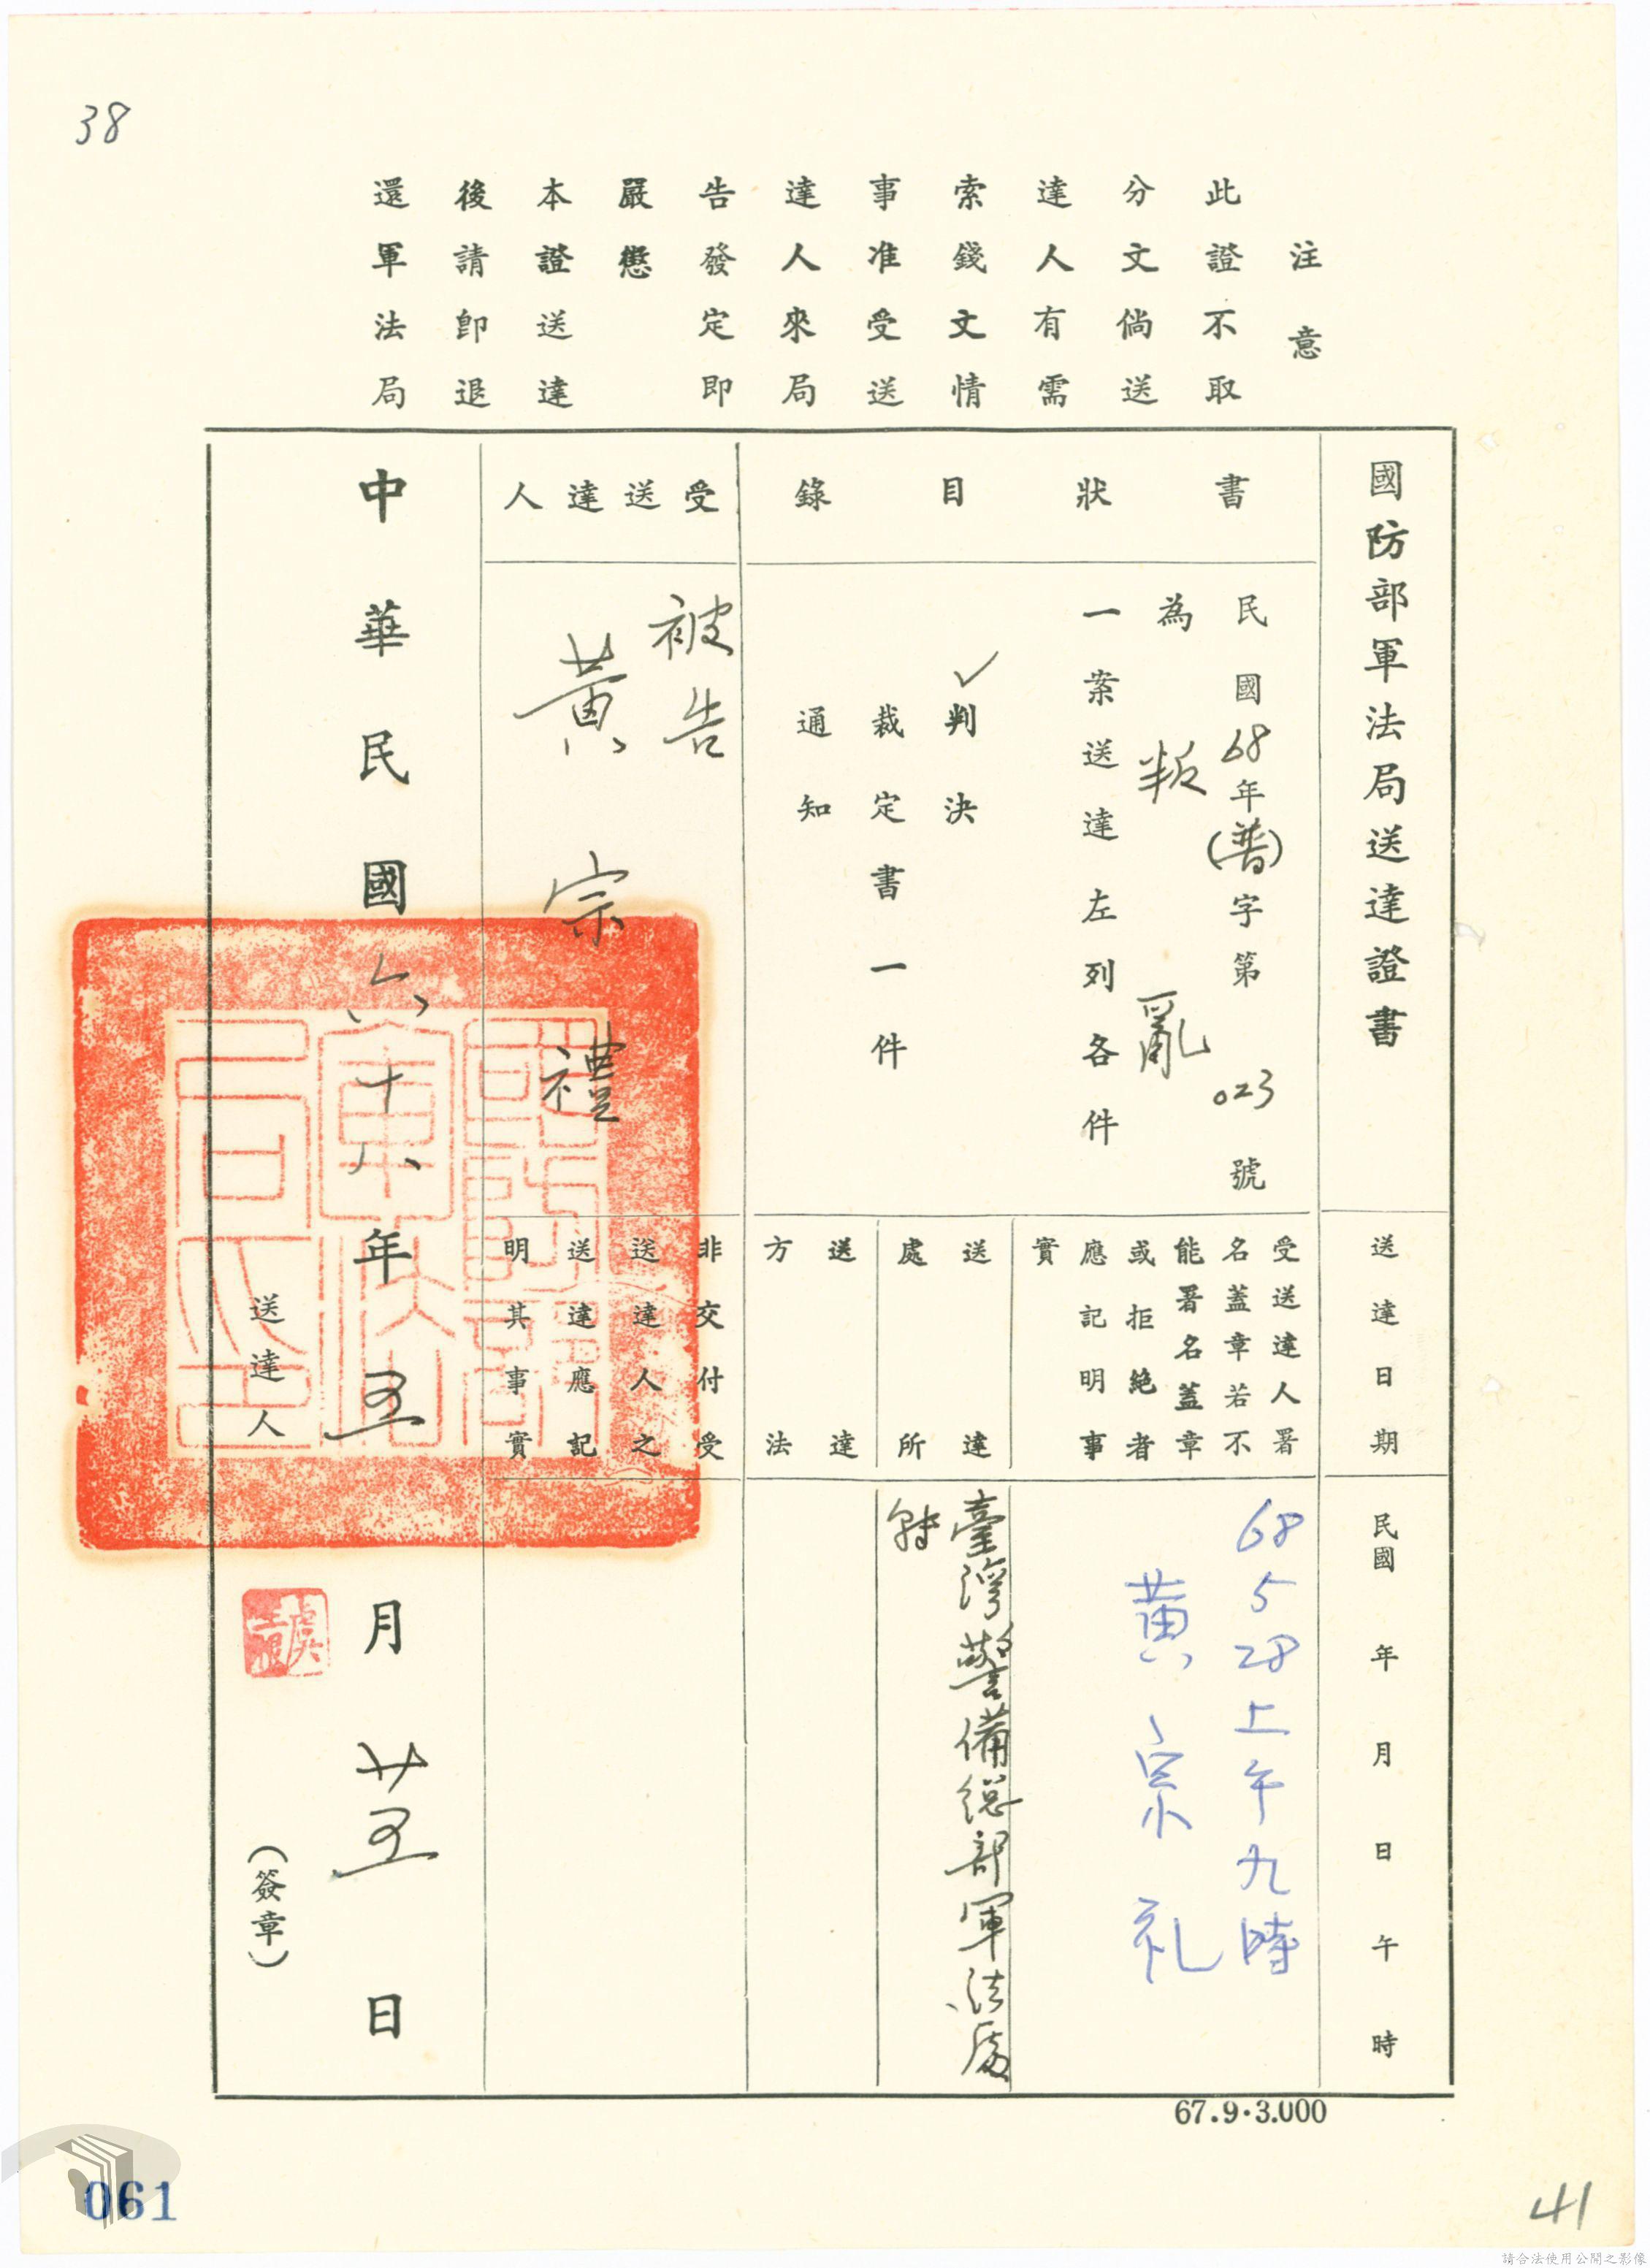 38
注意
此證不取
分文倘送
達人有需
索錢文情
事准受送
達人來局
告發定即
嚴懲
本證送達
後請卽退
還軍法局
國防部軍法局送達證書
書狀目錄
民國68年(普)字第023號
為叛亂
一案送達左列各件
✓判決
裁定書一件
通知
受送達人
被告
黃宗禮
送達日期
民國 年 月 日 午 時
受送達人署
名蓋章若不
能署名蓋章
或拒絕者
應記明事
實
68 5 28上午九時
黄宗礼
送達
處所
臺灣警備総部軍法處
轉
送達
方法
非交付受
送達人之
送達應記
明其事實
中華民國六十八年五月廿五日
送達人
(簽章)
67.9.3.000
061
41
請合法使用公開之影像